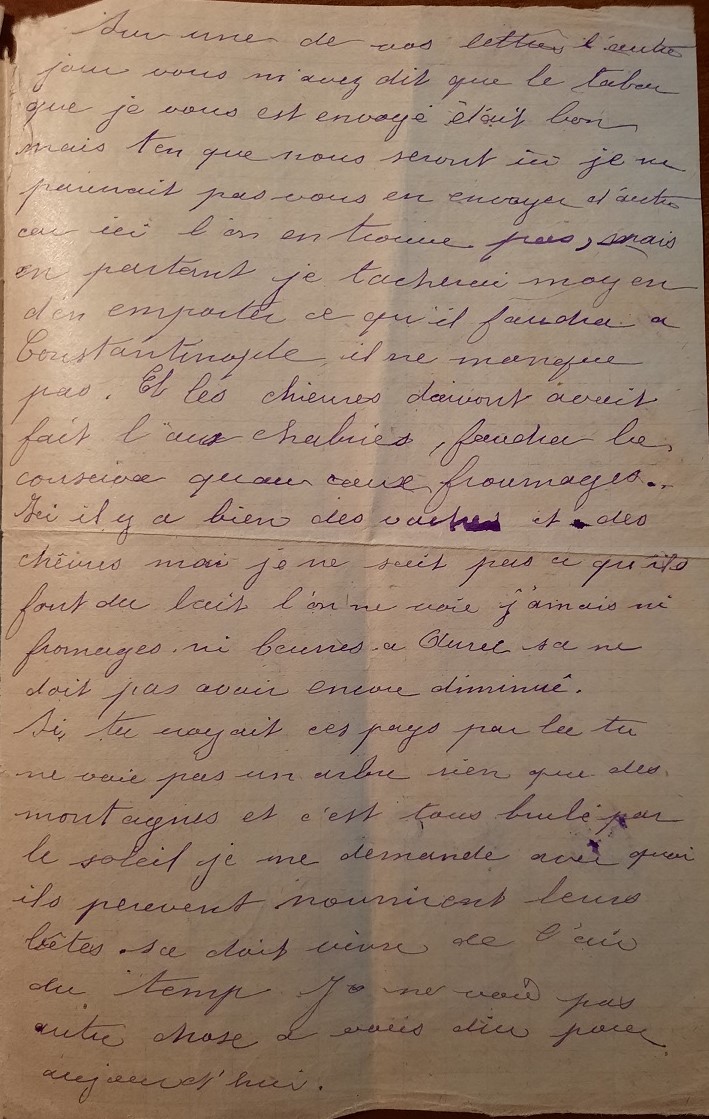 Sur une de vos lettres l'autre
jour vous m'avez dit que le tabac
que je vous est envoyé était bon
mais ten que nous seront ici je ne
pourrait pas vous en envoyer d'autre
car ici l'on en trouve pas, mais
en partant je tacherai moyen
d'en emporter ce qu'il faudra a
Constantinople il ne manque
pas. Et les chèvres doivent avoir
fait l'aux chabries, faudra les
conserve quan ceux froumages..
Ici il y a bien des vaches et des
chèvres mai je ne sait pas a qu'ils
font du lait l'on ne voie j'amais ni
fromages ni beurres a Aurel sa ne
doit pas avoir encore diminué.
Si, tu voyait ces pays par la tu
ne voie pas un arbre rien que des
montagnes et c'est tous brulé par
le soleil je me demande avec quoi
ils peuvent nourriront leurs
bêtes sa doit vivre de l'air
du temp Je ne voie pas
autre chose a vous dire pour
aujourd'hui.